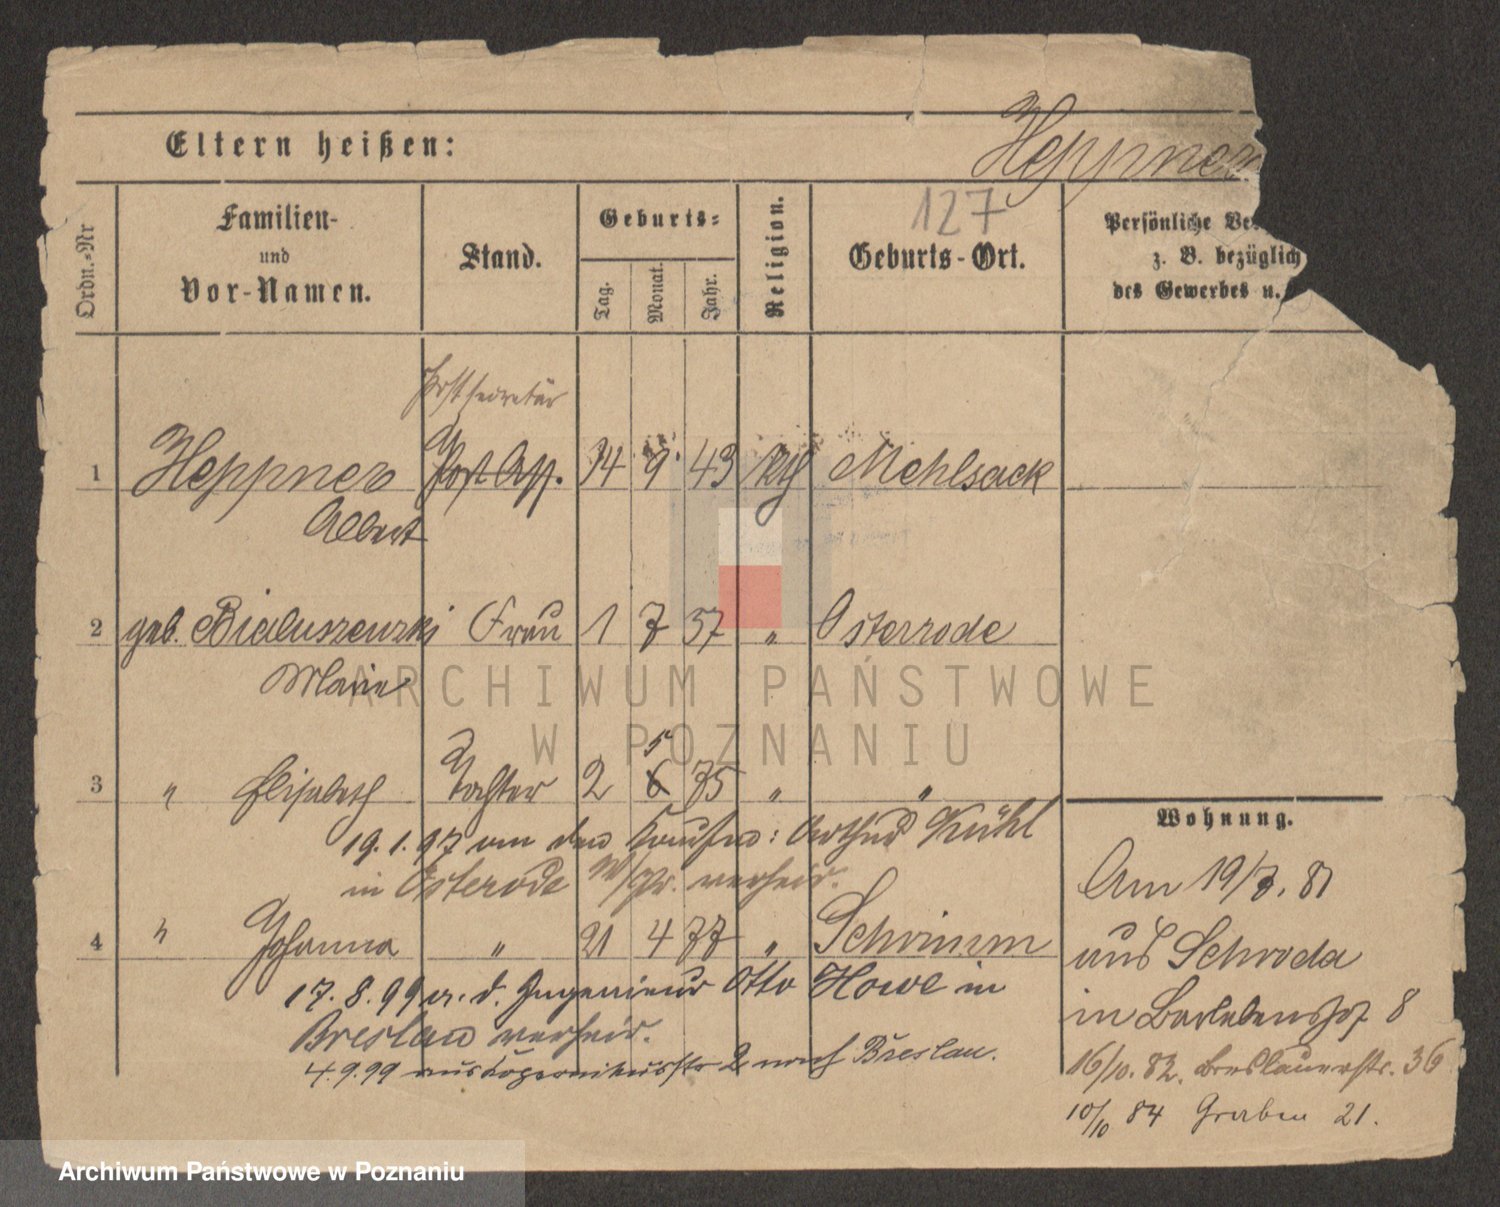 Eltern heißen:
Heppner
127
Ordn.-Nr
Familien-
und
Vor-Namen.
Stand.
Geburts-
Tag.
Monat.
Jahr.
Religion.
Geburts-Ort.
Persönliche
z. B. bezüglich
des Gewerbes u.
Postsecretär
1 Heppner Post Ass. 14 9 43 kth Mehlsack
Albert
2 geb. Bialuszewski Frau 1 7 57 " Osterrode
Marie
5
3 " Elisabeth Tochter 2 6 75 " "
19. 1. 97 an den Kaufm: Arthur Kühl
in Osterode W/Pr. verheir.
4 " Johanna " 21 4 77 " Schrimm
17. 8. 99 a. d. Ingenieur Otto Howe in
Breslau verheir.
4. 9. 99 aus Kopernikusstr 2 nach Breslau.
Wohnung.
Am 19/7. 81
aus Schroda
in Barlebenshof 8
16/10. 82. Breslauerstr. 36
10/10 84 Graben 21.
ARCHIWUM PAŃSTWOWE
W POZNANIU
Archiwum Państwowe w Poznaniu